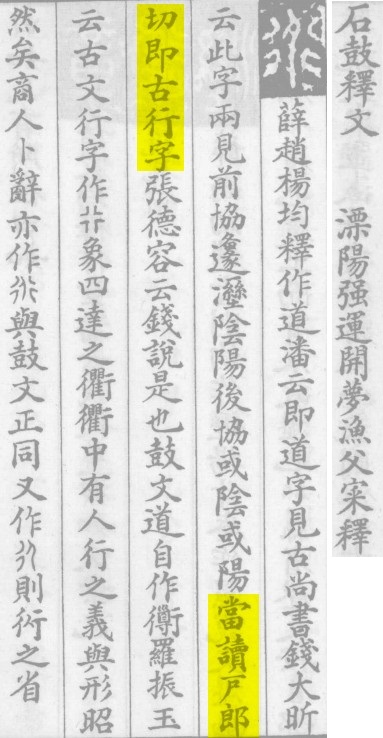 石鼓釋文　溧陽强運開夢漁父寀釋
薛趙楊均釋作道潘云即道字見古尚書錢大昕
云此字兩見前協邍溼陰陽後協或陰或陽當讀戶郎
切即古行字張德容云錢說是也鼓文道自作䢖羅振玉
云古文行字作𠁥象四達之衢衢中有人行之義與形昭
然矣商人卜辭亦作𧗟與鼓文正同又作㣔則𧗟之省